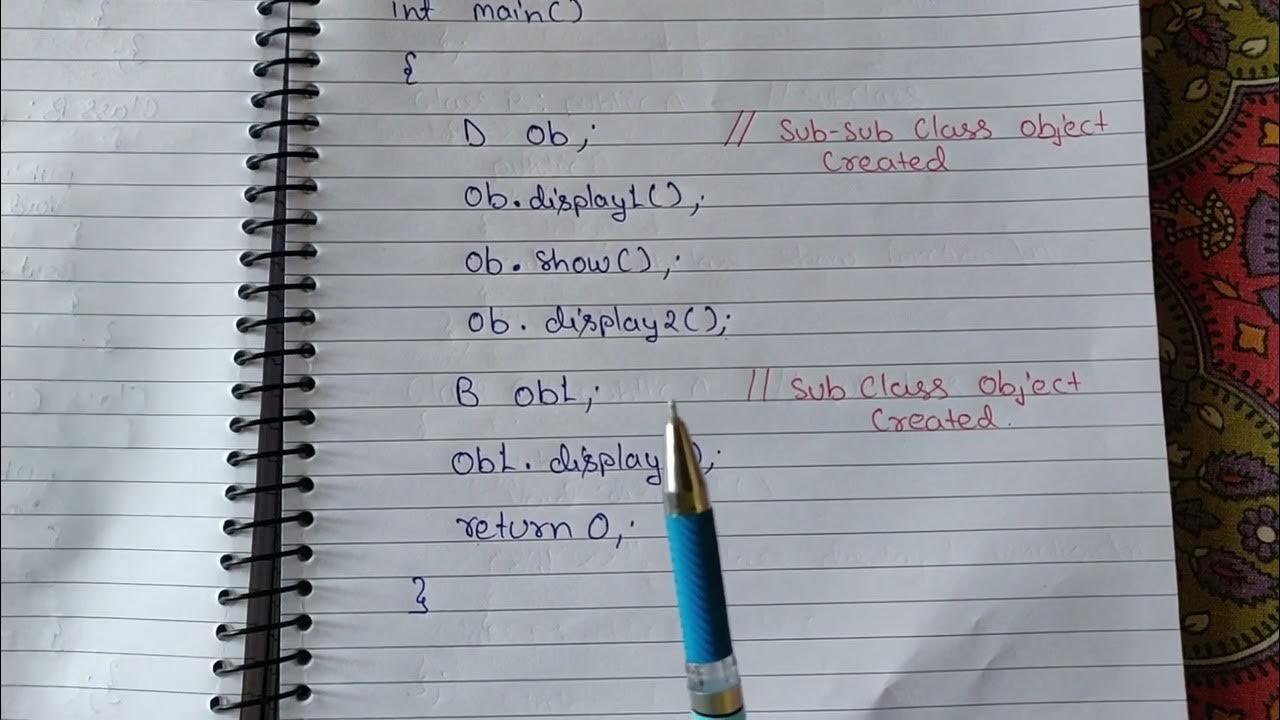 int main()
{
D ob; // Sub-Sub Class Object
Created
Ob.display1();
Ob.show();
Ob.display2();
B ob1; // Sub Class Object
Created.
Ob1.display
return 0;
}